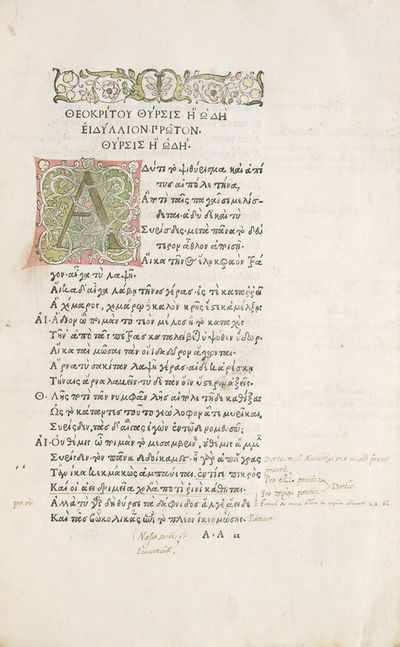 ΘΕΟΚΡΙΤΟΥ ΘΥΡΣΙΣ Ἢ ᾨΔΗ
ΕΙΔΥΛΛΙΟΝ ΠΡΩΤΟΝ.
ΘΥΡΣΙΣ Ἢ ᾨΔΗ.
ΑΔύ τι τὸ ψιθύρισμα καὶ ἁ πί
τυς αἰπόλε τήνα,
Ἃ ποτὶ ταῖς παγαῖσι μελίσ
δεται, ἁδὺ δὲ καὶ τὺ
Συρίσδες· μετὰ πᾶνα τὸ δεύ
τερον ἆθλον ἀποισῇ.
Αἴκα τῆνος ἕλῃ κεραὸν τρά
γον, αἶγα τὺ λαψῇ.
Αἴκα δ' αἶγα λάβῃ τῆνος γέρας, ἐς τὲ καταρρεῖ
Ἁ χίμαρος, χιμάρω δὲ καλὸν κρῆς ἔστε κ' ἀμέλξῃς.
ΑΙ· Ἅδιον ὦ ποιμὰν τὸ τεὸν μέλος ἢ τὸ καταχὲς
Τῆν' ἀπὸ τᾶς πέτρας καταλείβεται ὑψόθεν ὕδωρ.
Αἴκα ταὶ μῶσαι τὰν οἴιδα δῶρον ἄγωνται,
Ἄρνα τὺ σακίταν λαψῇ γέρας· αἰ δέ κ' ἀρέσκῃ
Τήναις ἄρνα λαβεῖν, τὺ δὲ τὰν ὄιν ὕστερον ἀξῇς.
Θ· Λῇς ποτὶ τᾶν νυμφᾶν λῇς αἰπόλε τῇδε καθίξας
Ὡς τὸ κάταντες τοῦτο γεώλοφον ἅτε μυρῖκαι,
Συρίσδεν, τὰς δ' αἶγας ἐγὼν ἐν τῷδε νομευσῶ.
ΑΙ· Οὐ θέμις ὦ ποιμὰν τὸ μεσαμβρινὸν, οὐ θέμις ἄμμιν
Συρίσδεν· τὸν πᾶνα δεδοίκαμες· ἦ γὰρ ἀπ' ἄγρας
Τανίκα κεκμακὼς ἀμπαύεται, ἐντί τε πικρὸς
Καί οἱ ἀεὶ δριμεῖα χολὰ ποτὶ ῥινὶ κάθηται.
Ἀλλὰ τὺ γὰρ δὴ θύρσι τὰ δάφνιδος ἄλγε' ἄειδες
Καὶ τᾶς βωκολικᾶς ἐπὶ τὸ πλέον ἵκεο μώσας.
Α·Α ιι